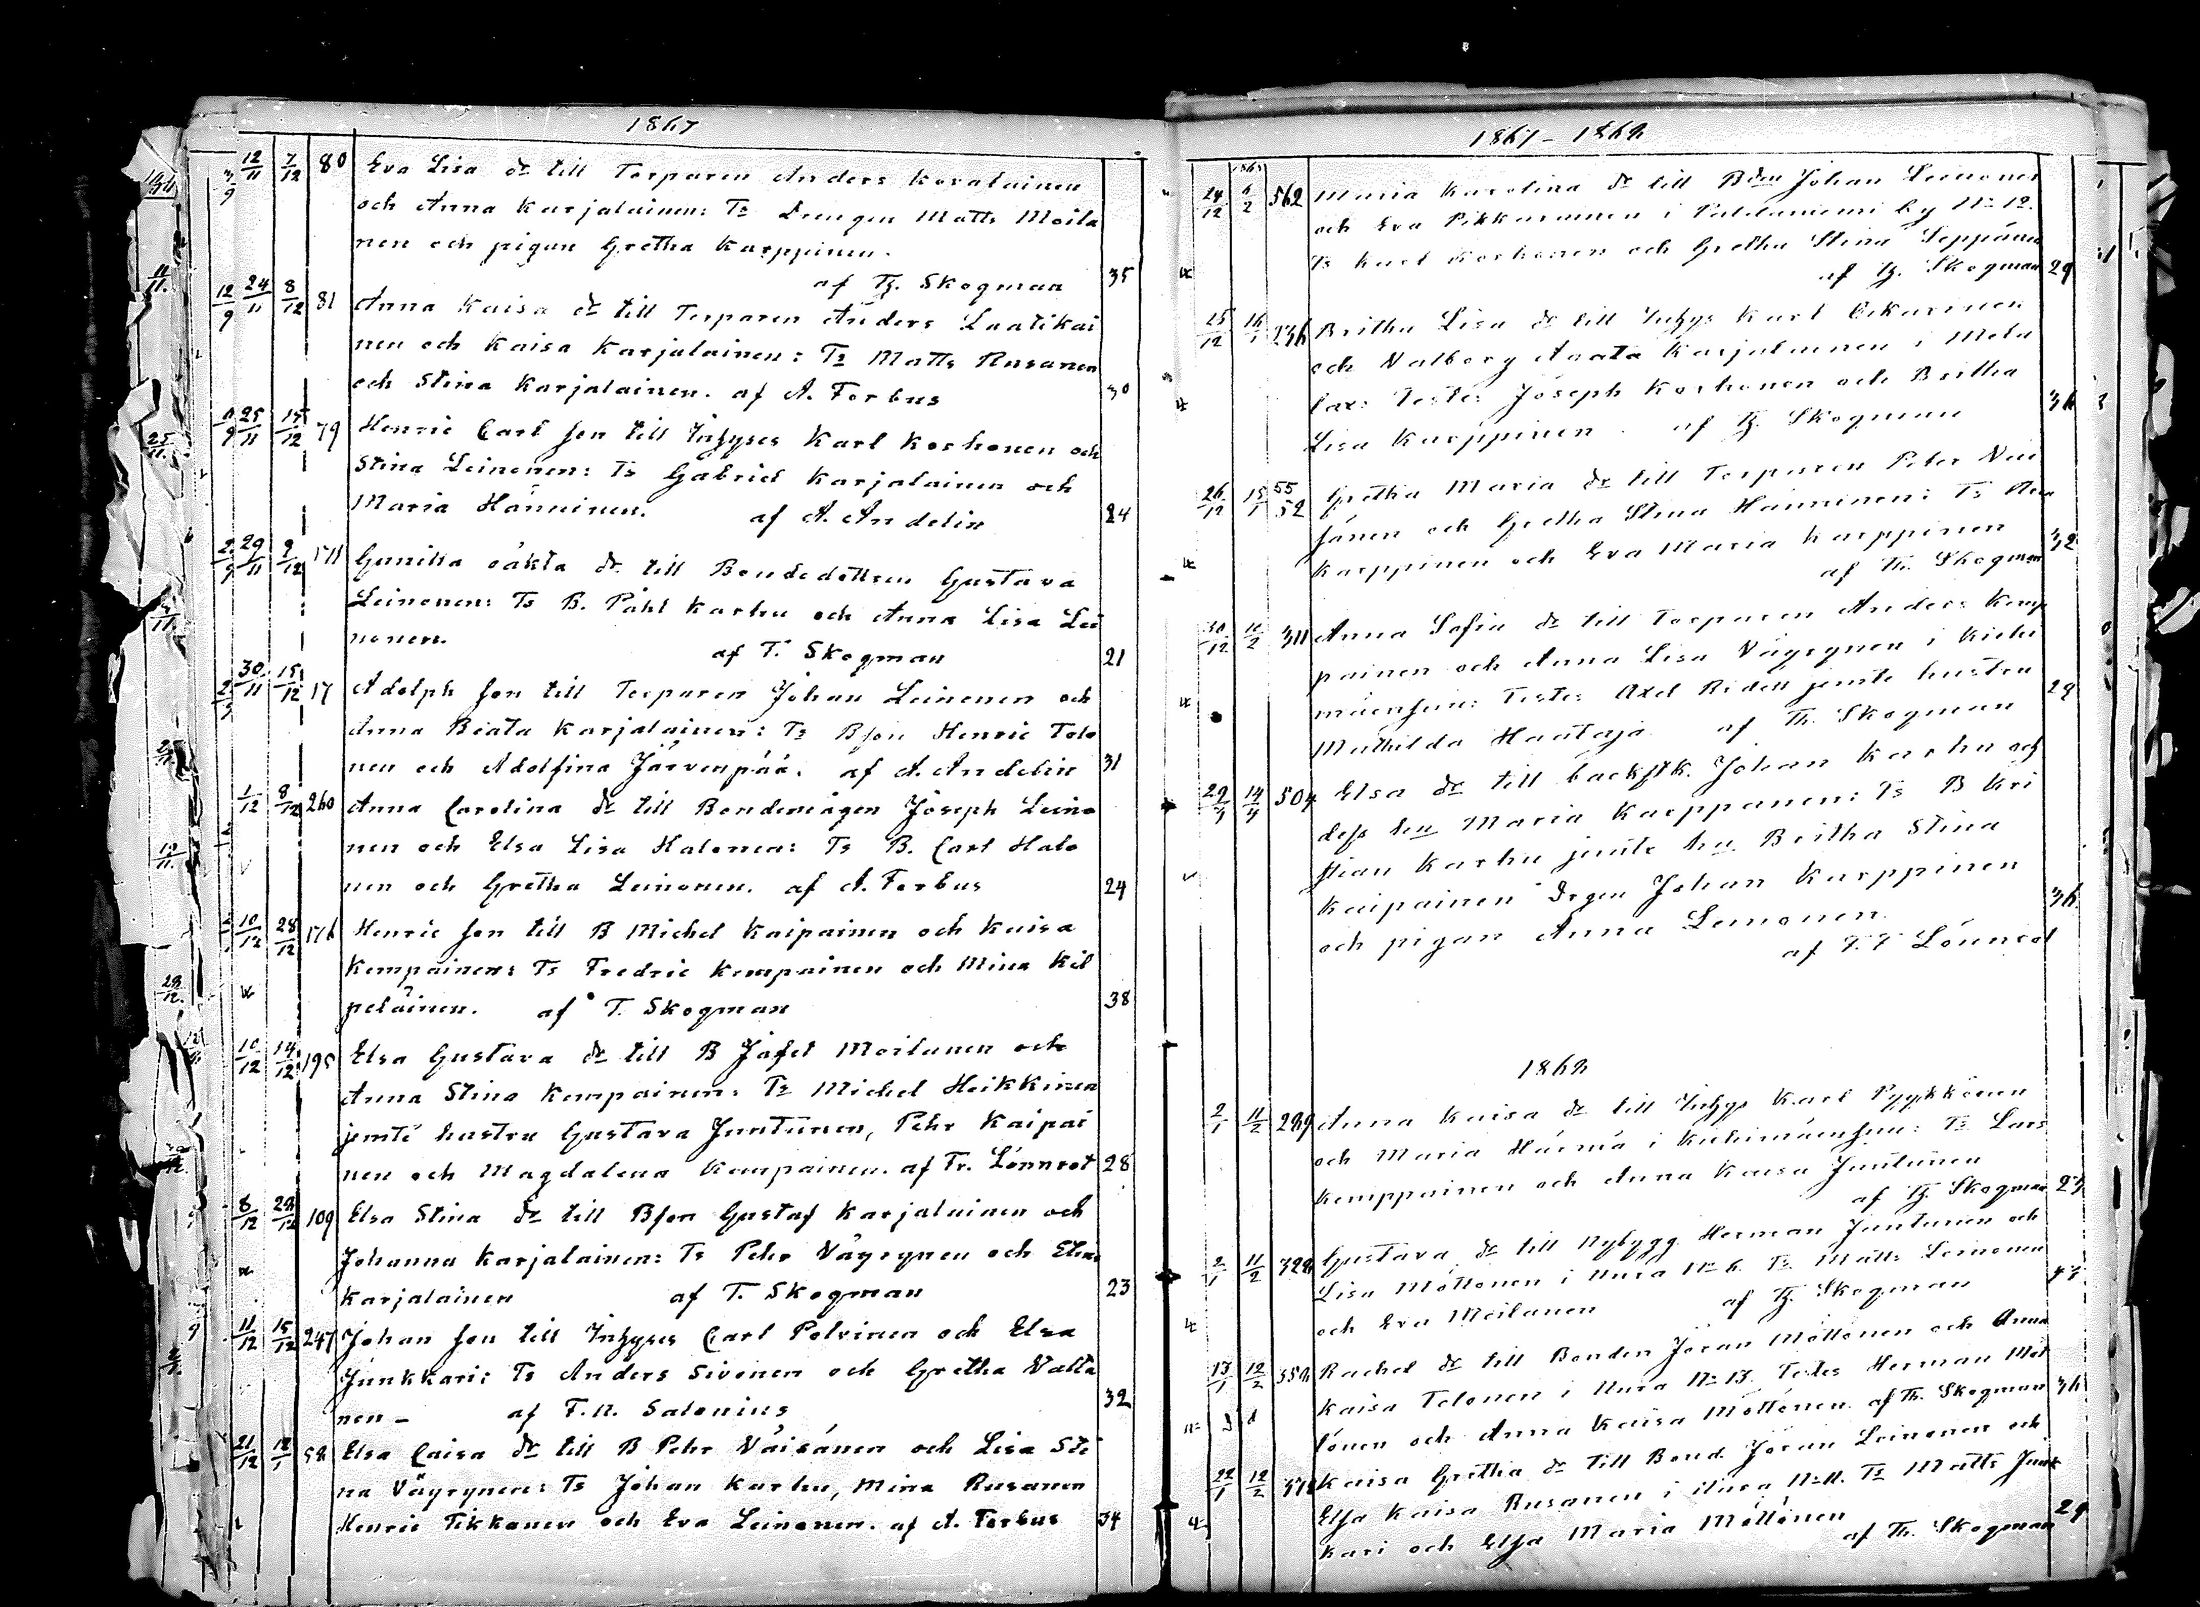 1867
12/11 7/12 80 Eva Lisa dr till Torparen Anders Kovalainen
och Anna Karjalainen: Ts Drengen Matts Moila
nen och pigan Gretha Karppinen.
af Th. Skogman 35
12/9 24/11 8/12 81 Anna Kaisa dr till Torparen Anders Laatikai
nen och Kaisa Karjalainen: Ts Matts Rusanen
och Stina Karjalainen. af A. Forbus 30
25/11 15/12 79 Henric Carl son till Inhyses Karl Korhonen och
Stina Leinonen: Ts Gabriel Karjalainen och
Maria Hänninen. af A. Andelin 24
29/11 9/12 Gunilla oäkta dr till Bondedottren Gustava
Leinonen: Ts B. Påhl Karhu och Anna Lisa Lei
nonen. af T. Skogman 21
30/11 15/12 17 Adolph son till Torparen Johan Leinonen och
Anna Beata Karjalainen: Ts Bson Henric Tolo
nen och Adolfina Järvenpää. af A. Andelin 31
1/12 8/12 260 Anna Carolina dr till Bondemågen Joseph Leino
nen och Elsa Lisa Halonen: Ts B. Carl Halo
nen och Gretha Leinonen. af A. Forbus 24
10/12 28/12 176 Henric son till B Michel Kaipainen och Kaisa
Kempainen: Ts Fredric Kempainen och Mina Kil
peläinen. af T. Skogman 38
10/12 14/12 195 Elsa Gustava dr till B Jafet Moilanen och
Anna Stina Kempainen: Ts Michel Heikkinen
jemte hustru Gustava Juntunen, Pehr Kaipai
nen och Magdalena Kempainen. af Fr. Lönnrot 28
8/12 29/12 109 Elsa Stina dr till Bson Gustaf Karjalainen och
Johanna Karjalainen: Ts Pehr Väyrynen och Elina
Karjalainen af T. Skogman 23
11/12 15/12 247 Johan son till Inhyses Carl Polvinen och Elsa
Junkkari: Ts Anders Sivonen och Gretha Valta
nen – af F.N. Salonius 32
21/12 12/1 52 Elsa Caisa dr till B Pehr Väisänen och Lisa Sti
na Väyrynen: Ts Johan Karhu, Mina Rusanen
Henric Tikkanen och Eva Leinonen. af A. Forbus 34
1867 – 1868
24/12 6/2 562 Maria Karolina dr till Bden Johan Leinonen
och Eva Pikkarainen i Paldaniemi by No 12.
Ts Karl Korhonen och Gretha Stina Seppänen
af Th. Skogman 29
25/12 16/1 236 Britha Lisa dr till Inhys Karl Oikarinen
och Valborg Agata Karjalainen i Mela
lax: Testes Joseph Korhonen och Britha
Lisa Karppinen. af Th. Skogman 36
26/12 15/1 55 52 Gretha Maria dr till Torparen Peter Väi
sänen och Gretha Stina Hänninen: Ts
Karppinen och Eva Maria Karppinen
af Th. Skogman 32
30/12 10/2 311 Anna Sofia dr till Torparen Anders Kemp
painen och Anna Lisa Väyrynen i Kiehi
mäensuu: Testes Axel Ridell jemte hustru
Mathilda Haataja af Th. Skogman 28
504 Elsa dr till backstk. Johan Karhu och
dess hu Maria Karppanen: Ts B Kri
stian Karhu jemte hu Britha Stina
Kaipainen Drgen Johan Karppinen
och pigan Anna Leinonen. 36
af F.F. Lönnrot
1868
2/1 11/2 289 Anna Kaisa dr till Inhys Karl Pyykkönen
och Maria Härmä i Kiehimäensuu: Ts Lars
Kemppainen och Anna Kaisa Juntunen
af Th. Skogman 27
2/1 11/2 328 Gustava dr till Nybygg. Herman Juntunen och
Lisa Möttönen i Aura No 6. Ts Matts Leinonen
och Eva Moilanen af Th. Skogman 43
13/1 12/2 352 Rachel dr till Bonden Jöran Möttönen och Anna
Kaisa Tolonen i Aura No 13. Testes Herman Möt
tönen och Anna Kaisa Möttönen. af Th. Skogman 36
22/1 12/2 Kaisa Gretha dr till Bond. Jöran Leinonen och
Elsa Kaisa Rusanen i Aura No 11. Ts Matts Junk
kari och Elsa Maria Möttönen
af Th. Skogman 29